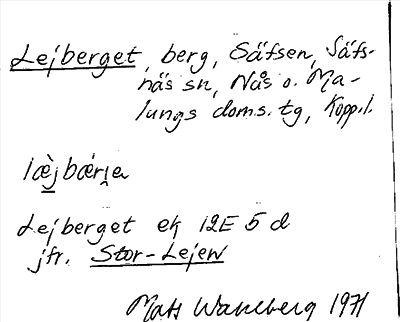 Lejberget, berg, Säfsen, Säfs-
näs sn, Nås o. Ma-
lungs doms. tg, Kopp.l.
læ̀jbær̨ɩe
Lejberget ek 12E 5 d
jfr. Stor-Lejen
Mats Wahlberg 1971